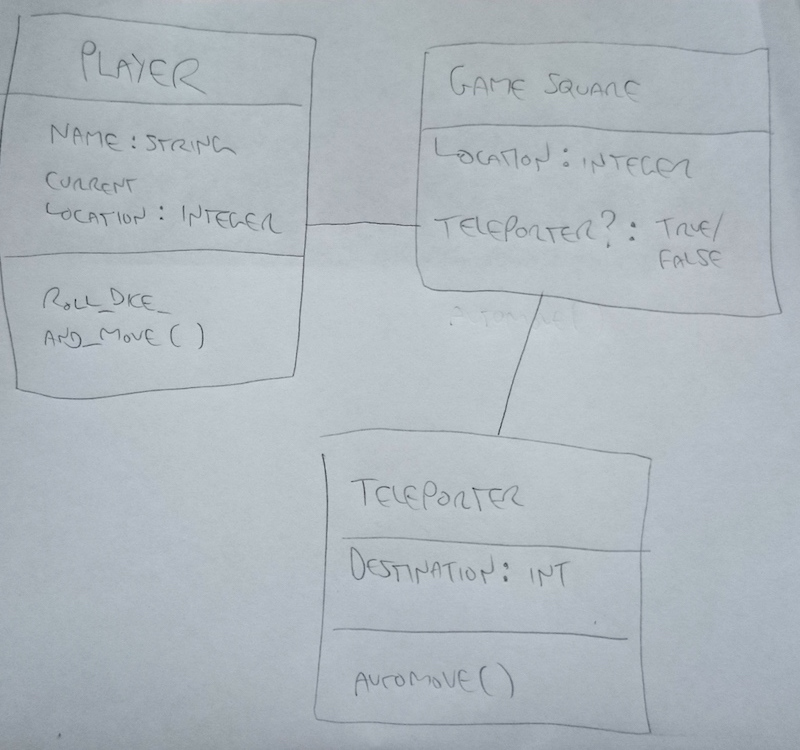 PLAYER
NAME : STRING
CURRENT
LOCATION : INTEGER
ROLL_DICE_
AND_MOVE ( )
GAME SQUARE
LOCATION : INTEGER
TELEPORTER? : TRUE/
FALSE
AUTOMOVE( )
TELEPORTER
DESTINATION : INT
AUTOMOVE( )